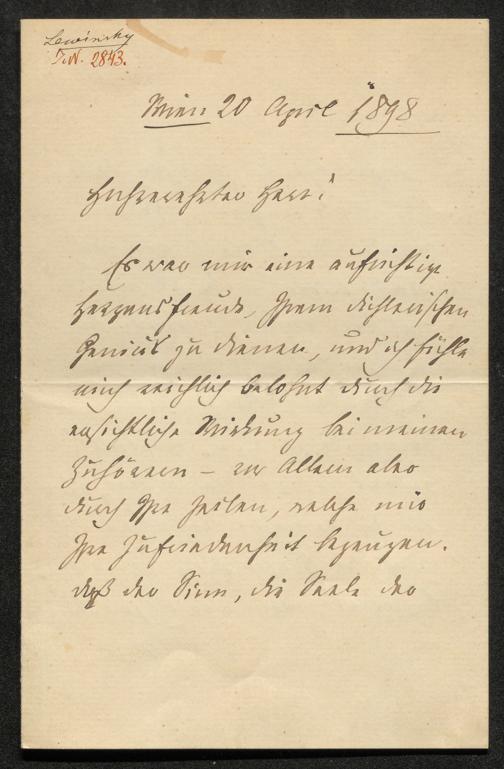 Lewinsky
J.N. 2843.
Wien 20 April 1898
Hochverehrter Herr!
Es war mir eine aufrichtige
Herzensfreude, Ihrem dichterischen
Genius zu dienen, und ich fühle
mich reichlich belohnt durch die
ersichtliche Wirkung bei meinen
Zuhörern – vor Allem aber
durch Ihre Zeilen, welche mir
Ihre Zufriedenheit bezeugen.
daß der Sinn, die Seele der